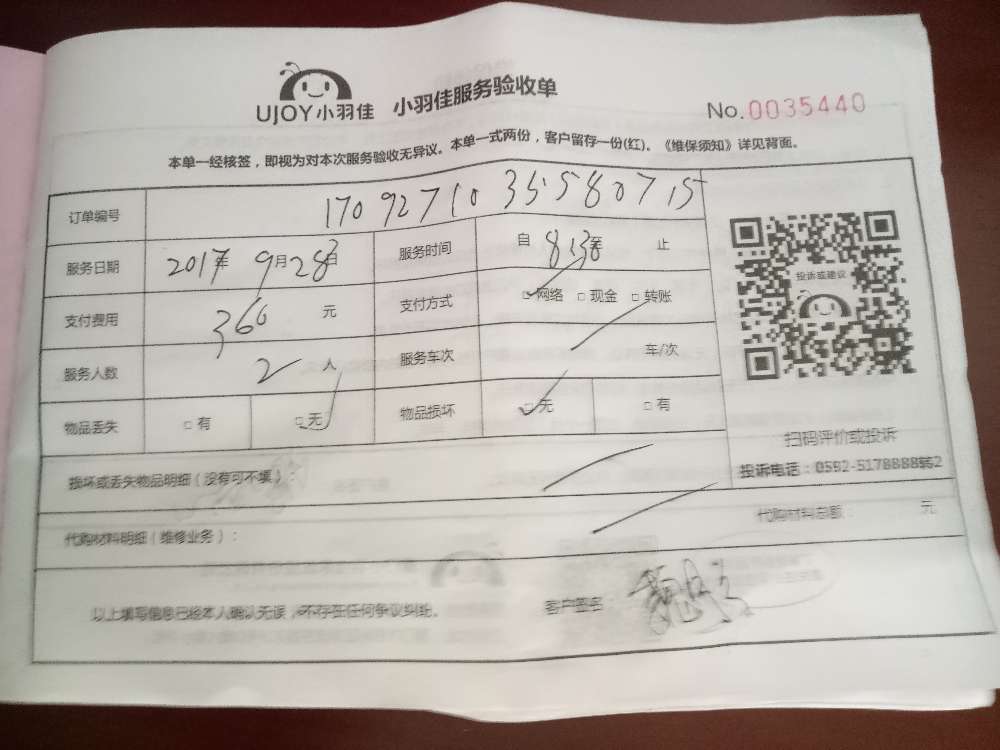 UJOY小羽佳 小羽佳服务验收单 No.0035440
本单一经核签，即视为对本次服务验收无异议。本单一式两份，客户留存一份(红)。《维保须知》详见背面。
订单编号 1709271033580715
服务日期 2017年 9月 28日 服务时间 自 8:30至 止
投诉或建议
支付费用 360 元 支付方式 □网络 □现金 □转账
服务人数 2 人 服务车次 车/次
物品丢失 □有 □无 物品损坏 □无 □有
扫码评价或投诉
损坏或丢失物品明细（没有可不填）：
投诉电话：0592-5178888转2
代购材料明细（维修业务）： 代购材料总额： 元
以上填写信息已经本人确认无误，不存在任何争议纠纷。 客户签名：